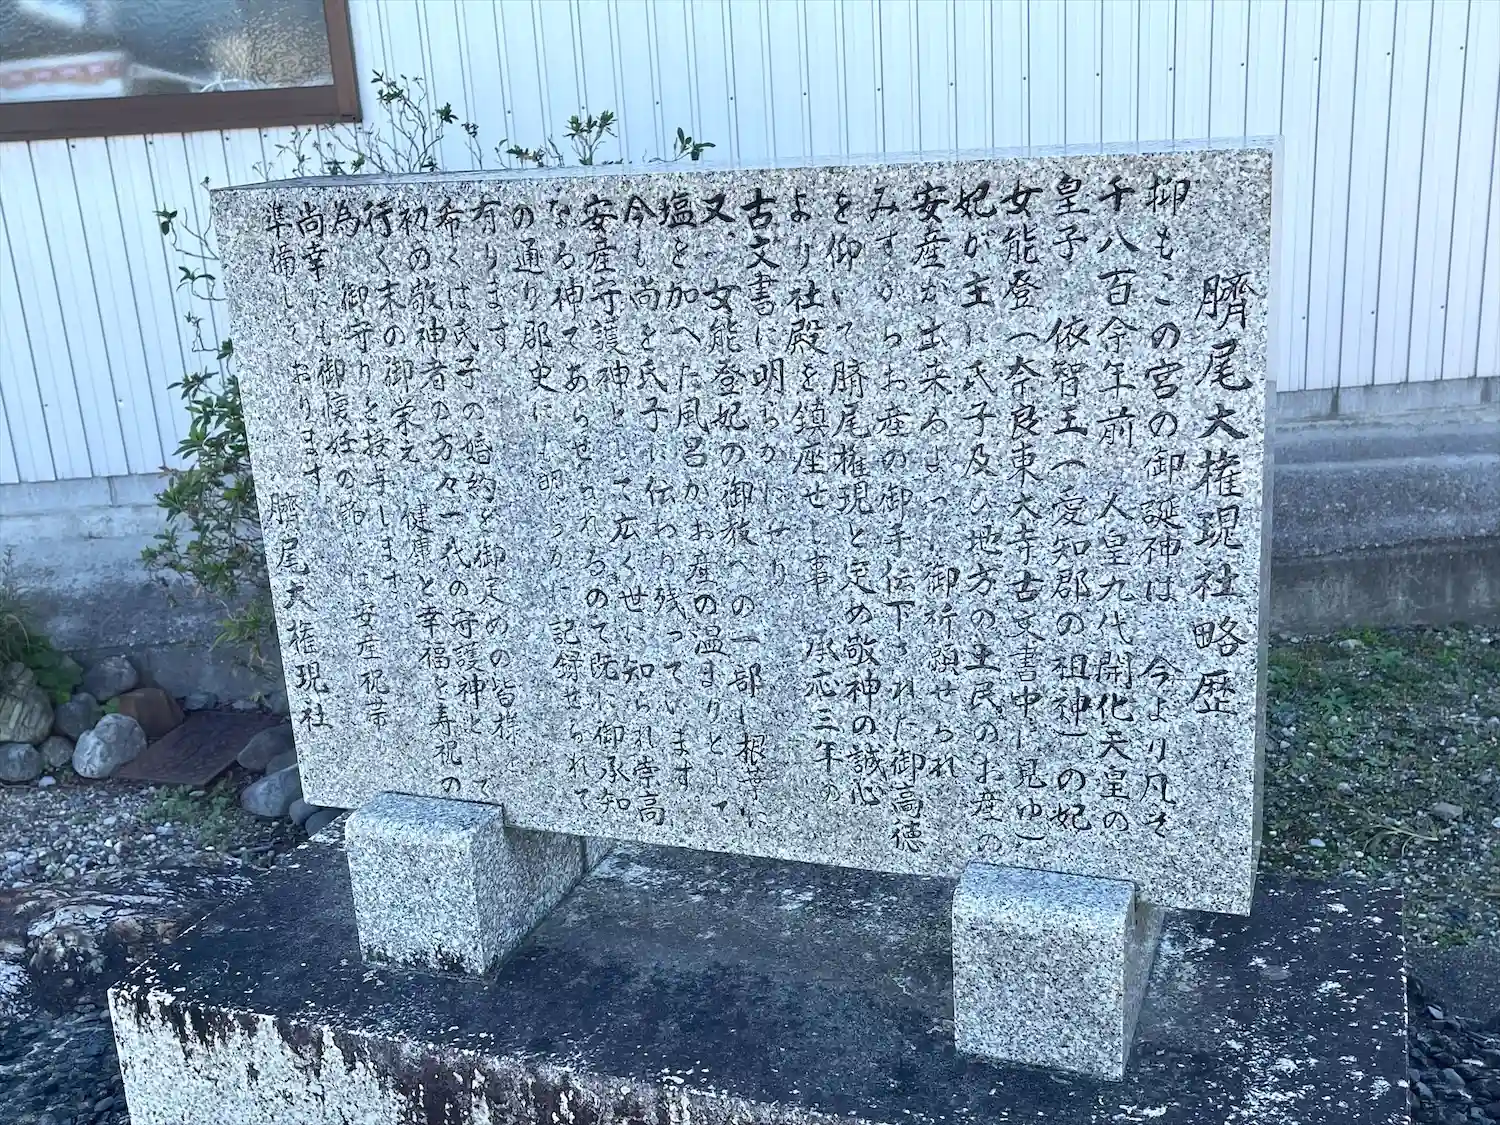 臍尾大権現社略歴
抑もこの宮の御誕神は 今より凡そ
千八百余年前 人皇九代開化天皇の
皇子 依智王(愛知郡の祖神)の妃
女能登(奈良東大寺古文書中に見ゆ)
妃が主に氏子及び地方の土民のお産の
安産が出来るよう 御祈願せられ
みずからお産の御手伝下された御高徳
を仰いで臍尾権現と定め敬神の誠心
より社殿を鎮座せし事 承応三年の
古文書に明らかにせり
又、女能登妃の御教への一部し根葉に
塩を加へた風呂がお産の温まりとして
今も尚を氏子に伝わり残っています
安産守護神として広く世に知られ崇高
なる神であらせられるので既に御承知
の通り郡史にも明らかに記録せられて
有ります
希くは氏子の婚約を御定めの皆様
初の敬神者の方々一代の守護神として
行く末の御栄え 健康と幸福と寿祝の
為 御守りを授与します
尚幸にも御懐妊の節には安産祝帯
準備しております 臍尾大権現社